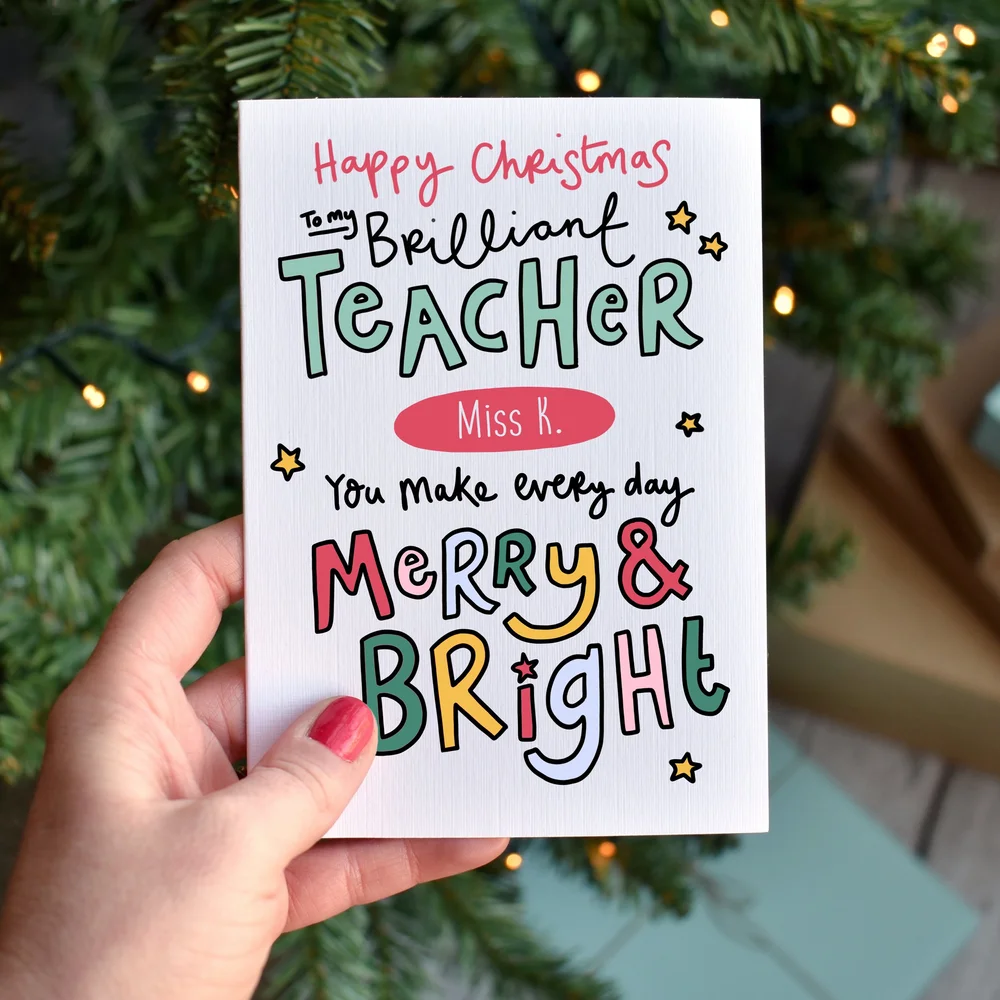 Happy Christmas
To my Brilliant
TeacHeR
Miss K.
You make every day
MeRRy &
BRigHt